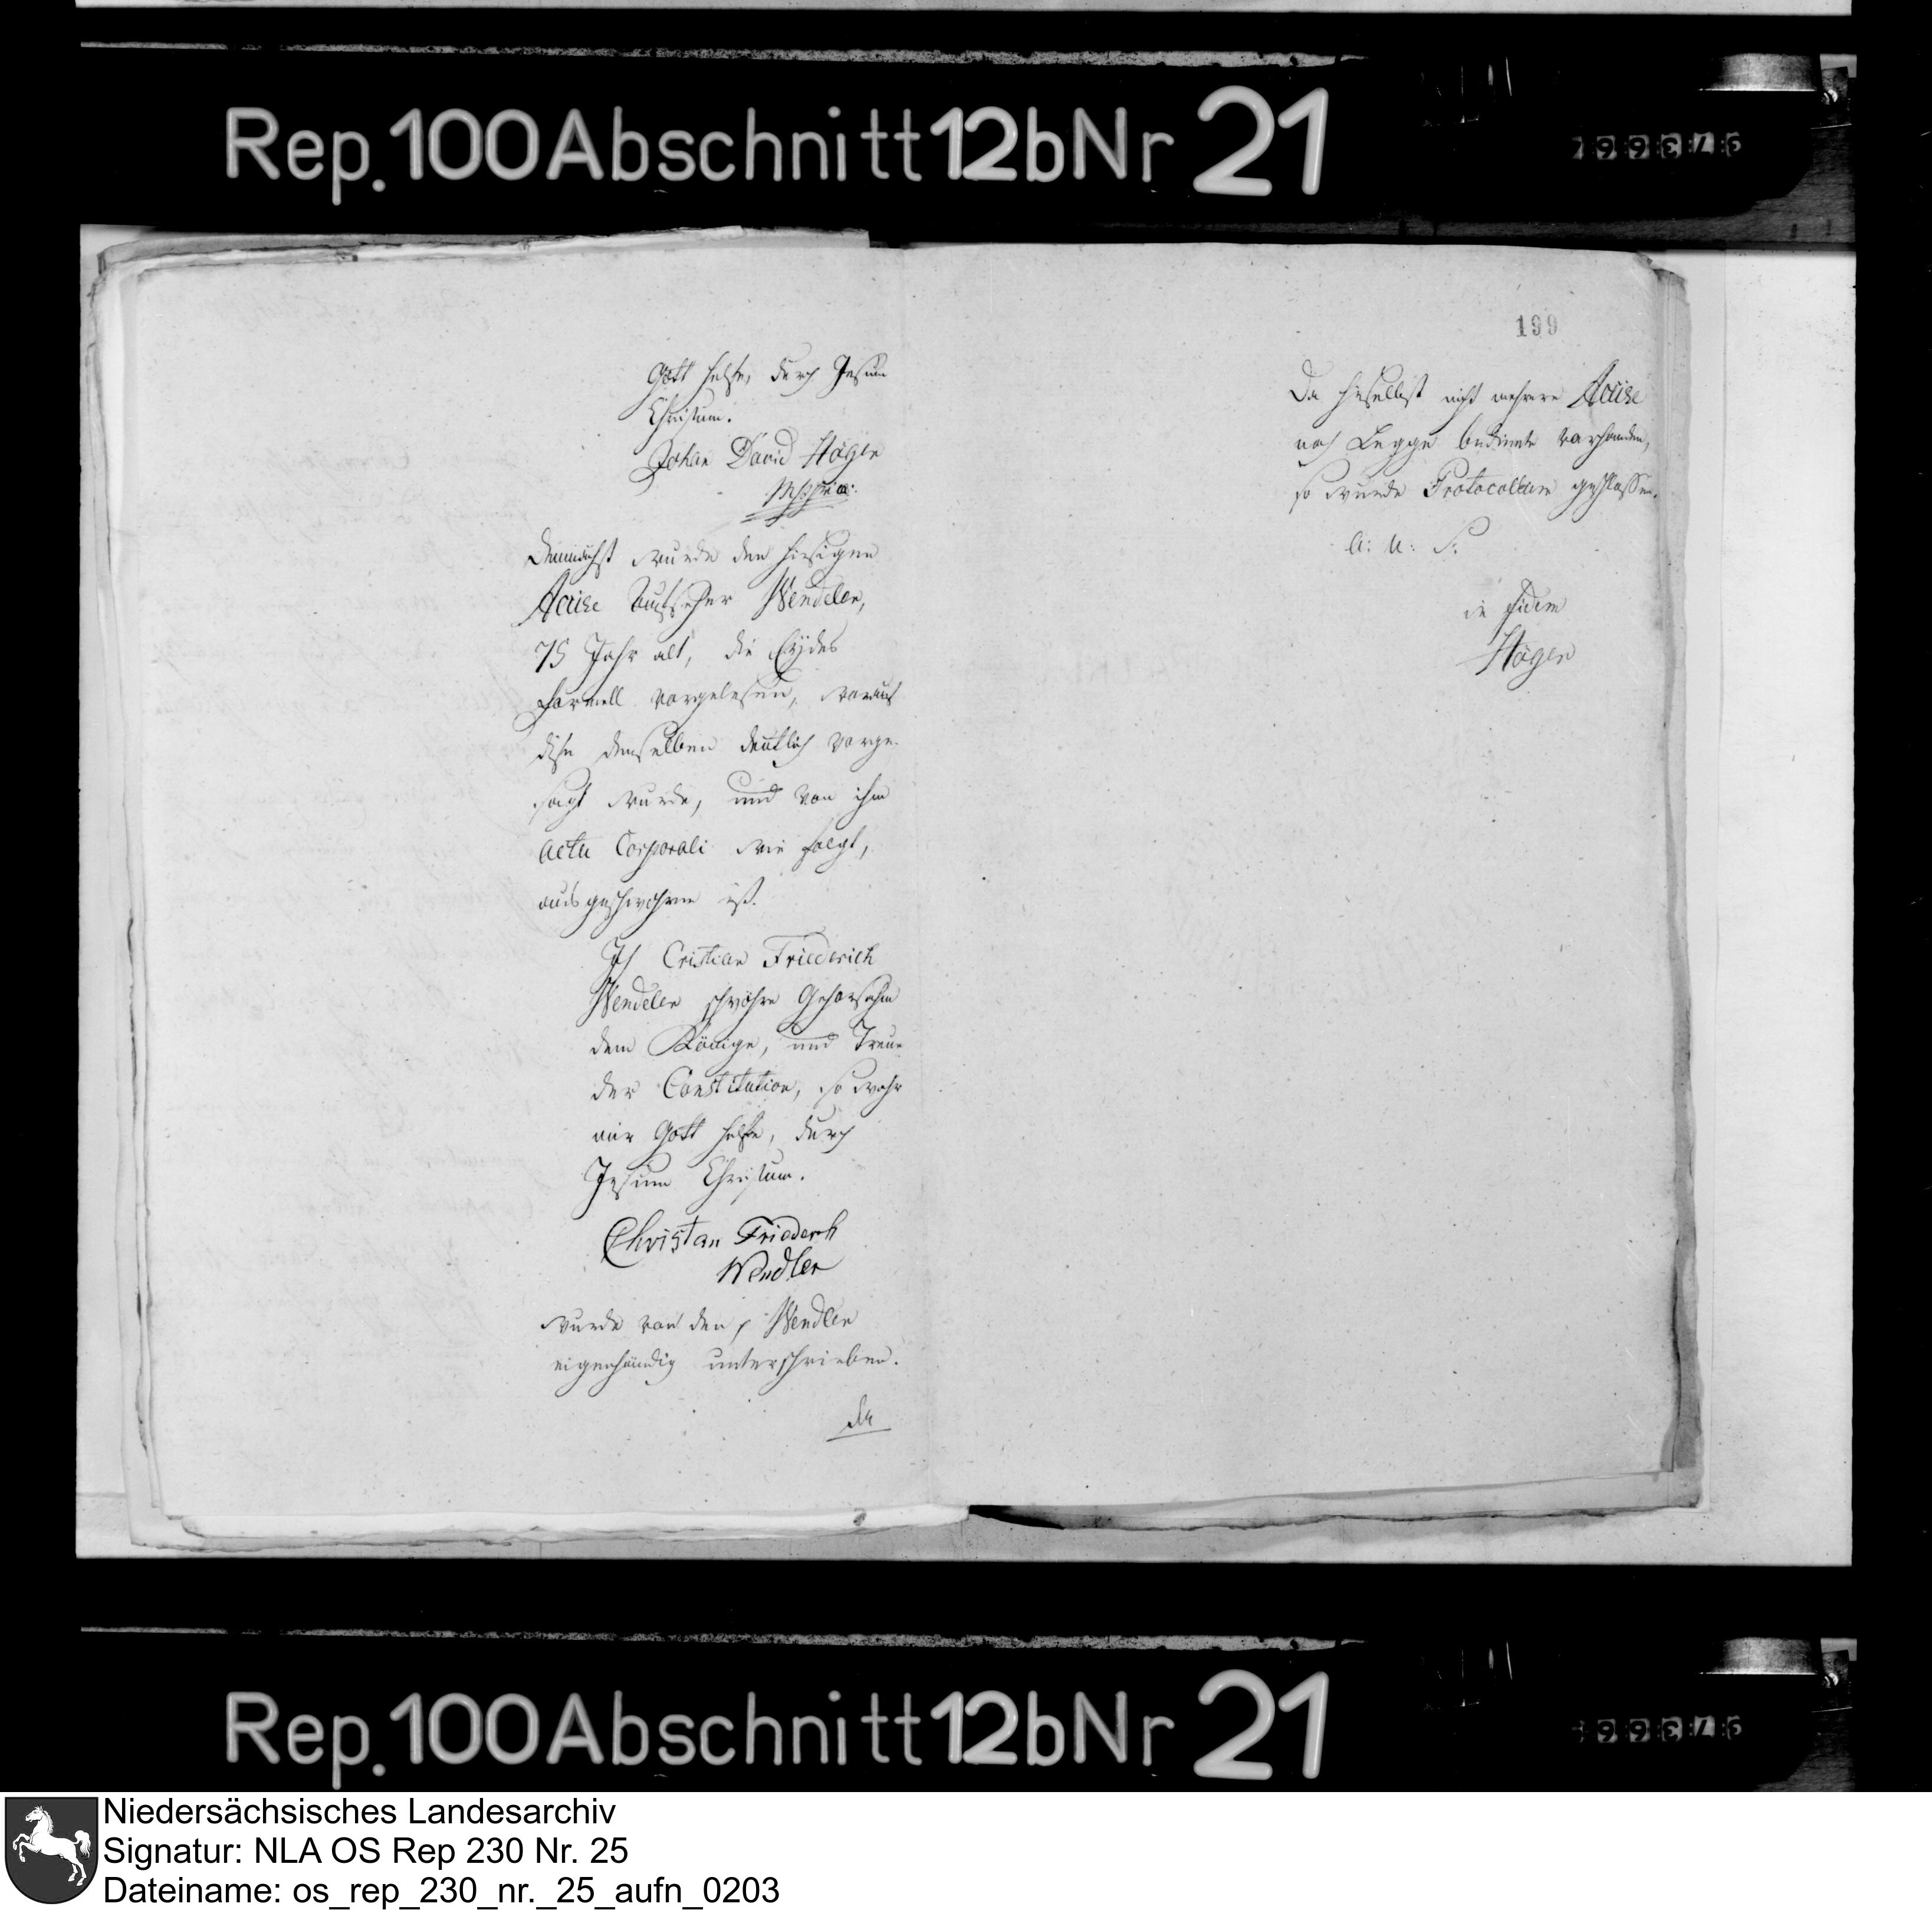 Rep.100Abschnitt12bNr 21
Gott helfe, durch Jesum
Christum.
Johan David Högen
Mppria:
Demnächst wurde den hiesigen
Accise Aufseher Wendeler,
75 Jahr alt, die Eydes
Formell vorgelesen, worauf
diese demselben deutlich vorge-
sagt wurde, und von ihm
actu Corporali wie folgt,
ausgeschwohren ist.
Ich Cristian Friederich
Wendeler schwöhre Gehorsahm
dem Könige, und Treue
der Constitution, so wahr
mir Gott helfe, durch
Jesum Christum.
Christan Friederh
Wendler
wurde von den p Wendler
eigenhändig unterschrieben.
da
199
Da hieselbst nicht mehrere Accise
noch Legge bediente vorhanden,
so wurde Protocollum geschlossen.
A: U: S:
in fidem
Högen
Rep.100Abschnitt12bNr 21
Niedersächsisches Landesarchiv
Signatur: NLA OS Rep 230 Nr. 25
Dateiname: os_rep_230_nr._25_aufn_0203